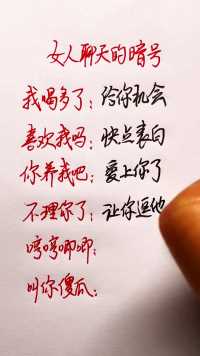 女人聊天的暗号
我喝多了：给你机会
喜欢我吗：快点表白
你养我吧：爱上你了
不理你了：让你逗他
哼哼唧唧：
叫你傻瓜：